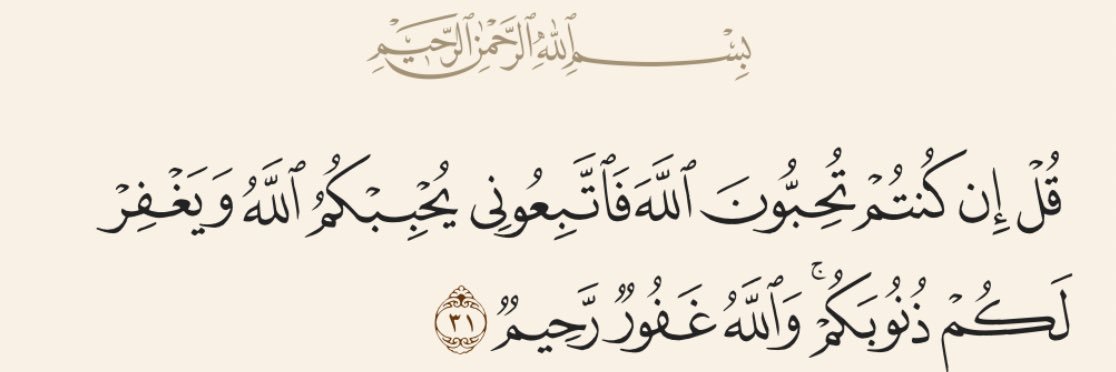 بِسْمِ ٱللَّهِ ٱلرَّحْمَٰنِ ٱلرَّحِيمِ
قُلْ إِن كُنتُمْ تُحِبُّونَ ٱللَّهَ فَٱتَّبِعُونِى يُحْبِبْكُمُ ٱللَّهُ وَيَغْفِرْ
لَكُمْ ذُنُوبَكُمْ ۗ وَٱللَّهُ غَفُورٌ رَّحِيمٌ ٣١